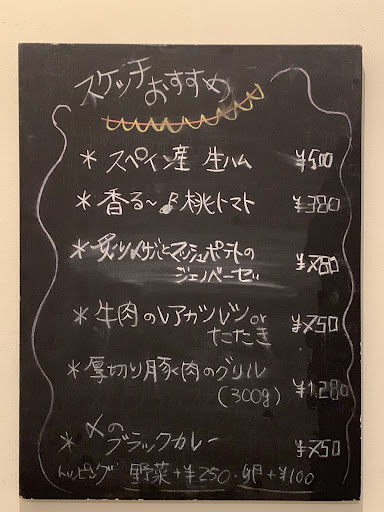 スケッチおすすめ
* スペイン産 生ハム ¥500
* 香る〜♪桃トマト ¥380
* 炙り〆サバとマッシュポテトの ¥780
ジェノベーゼ
* 牛肉のレアカツレツor ¥750
たたき
* 厚切り豚肉のグリル
(300g) ¥1,280
* 〆の
ブラックカレー ¥750
トッピング 野菜+¥250・卵+¥100